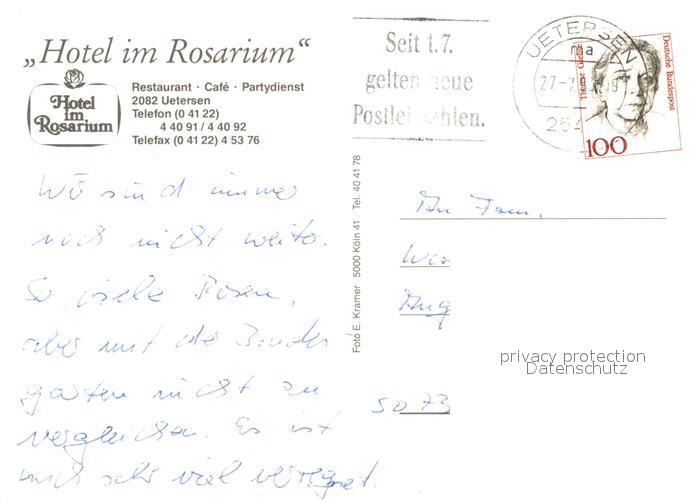 „Hotel im Rosarium“
Hotel
im
Rosarium
Restaurant · Café · Partydienst
2082 Uetersen
Telefon (0 41 22)
4 40 91 / 4 40 92
Telefax (0 41 22) 4 53 76
Seit 1.7.
gelten neue
UETERSEN
Therese Giehse
Deutsche Bundespost
100
Wir sind immer
noch nicht weiter.
So viele Rosen,
aber mit die
garten nicht zu
vergleichen. Es ist
auch sehr viel verregnet.
Foto E. Kramer 5000 Köln 41 Tel. 40 41 78
An Fam.
5073
privacy protection
Datenschutz